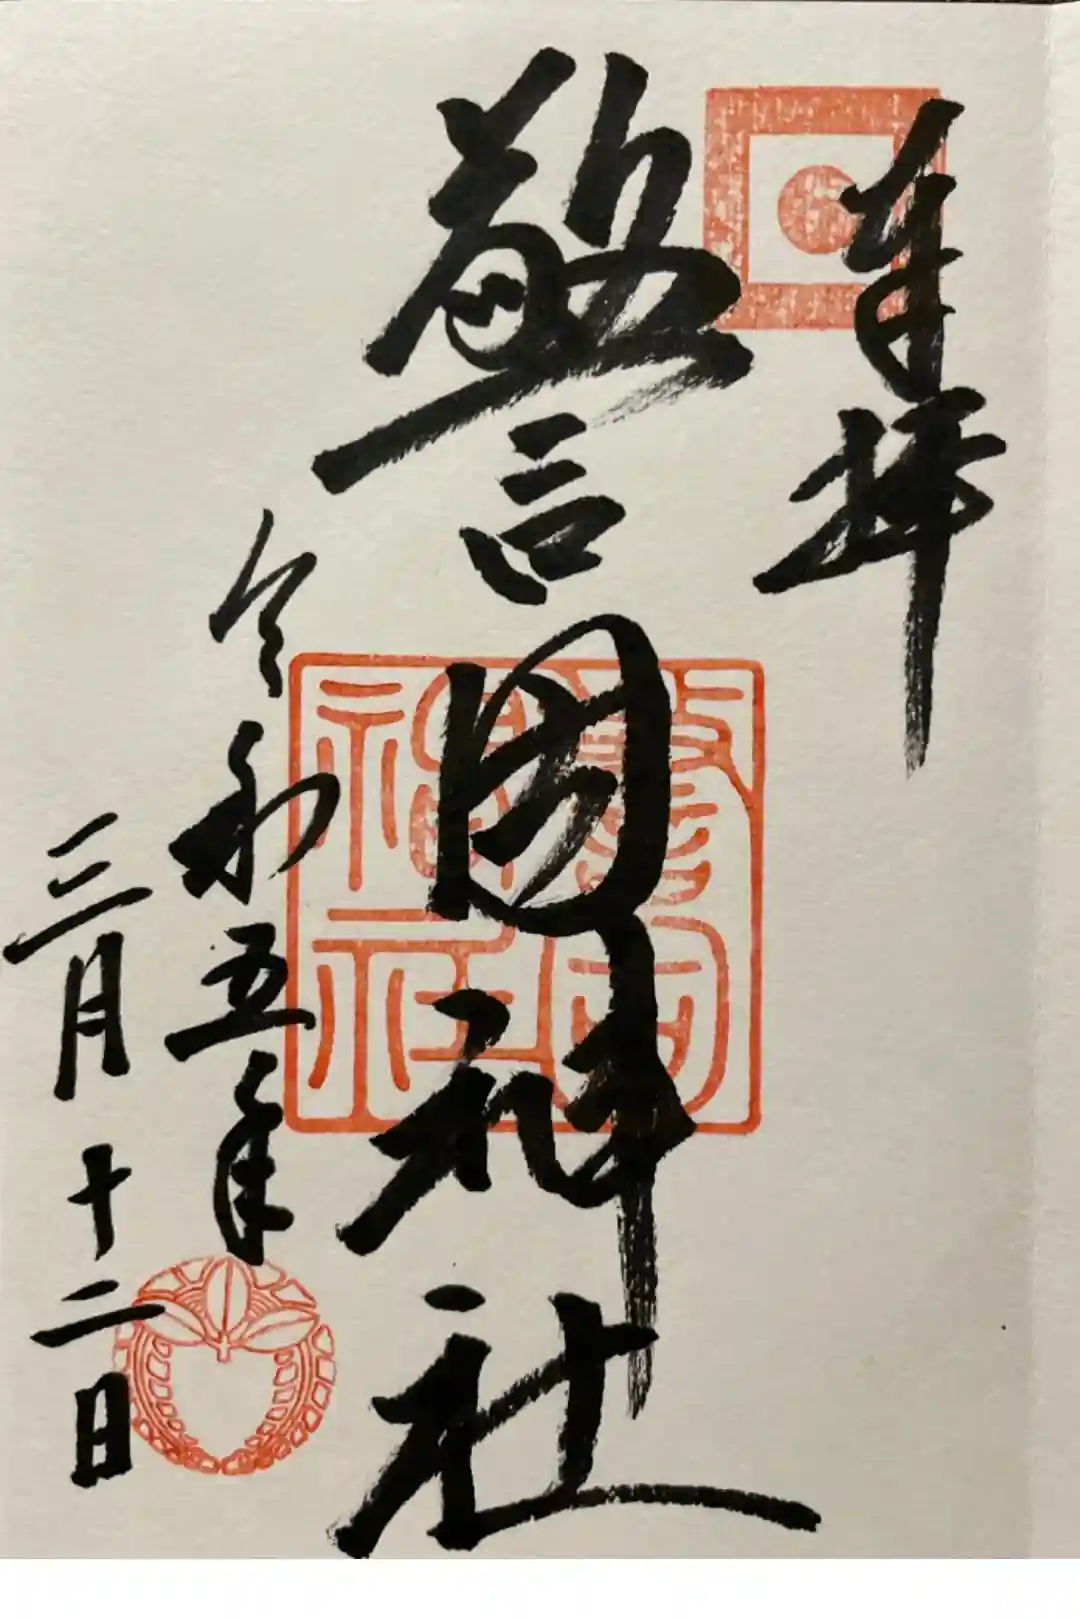 奉拝
警固神社
令和五年
三月十二日